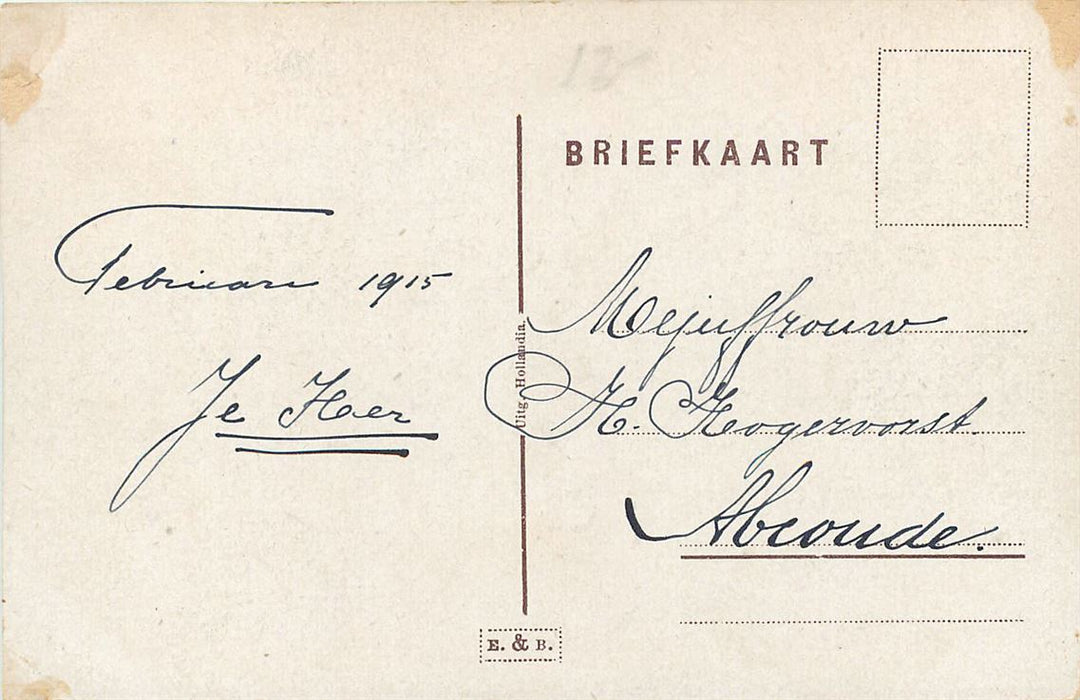 12
BRIEFKAART
Februari 1915
Je Her
Mejuffrouw
H. Hogervorst.
Abcoude.
Uitg. Hollandia.
E. & B.